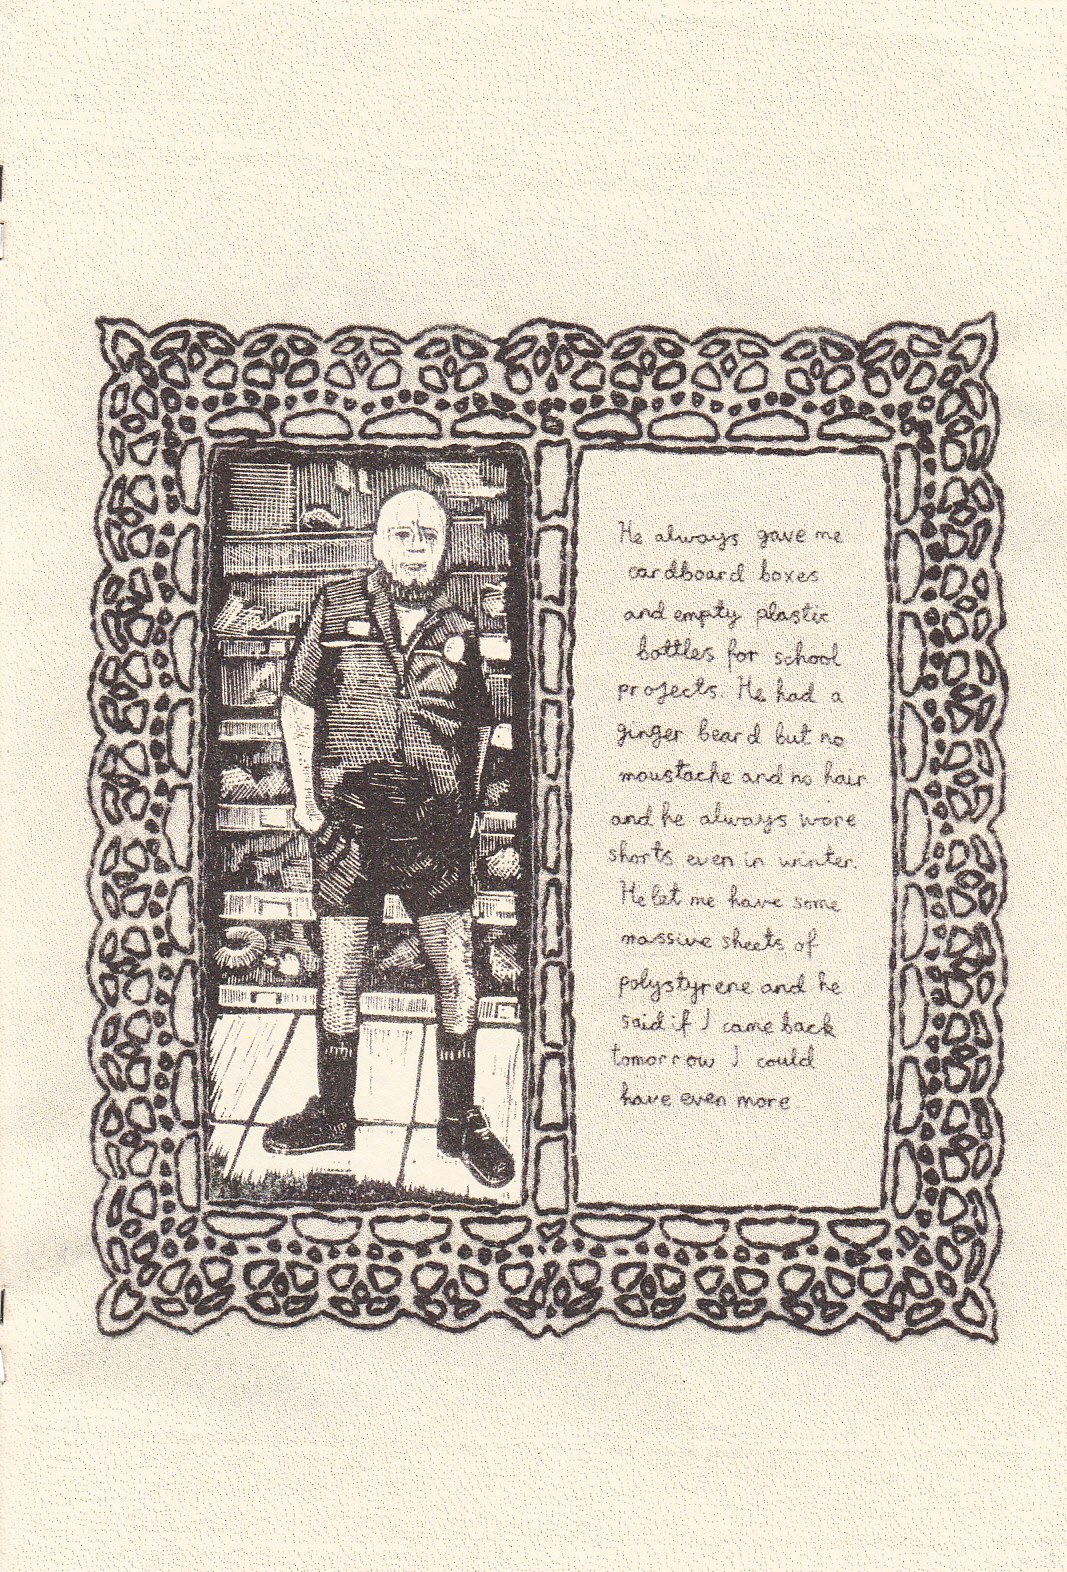 He always gave me
cardboard boxes
and empty plastic
bottles for school
projects. He had a
ginger beard but no
moustache and no hair
and he always wore
shorts even in winter.
He let me have some
massive sheets of
polystyrene and he
said if I came back
tomorrow I could
have even more